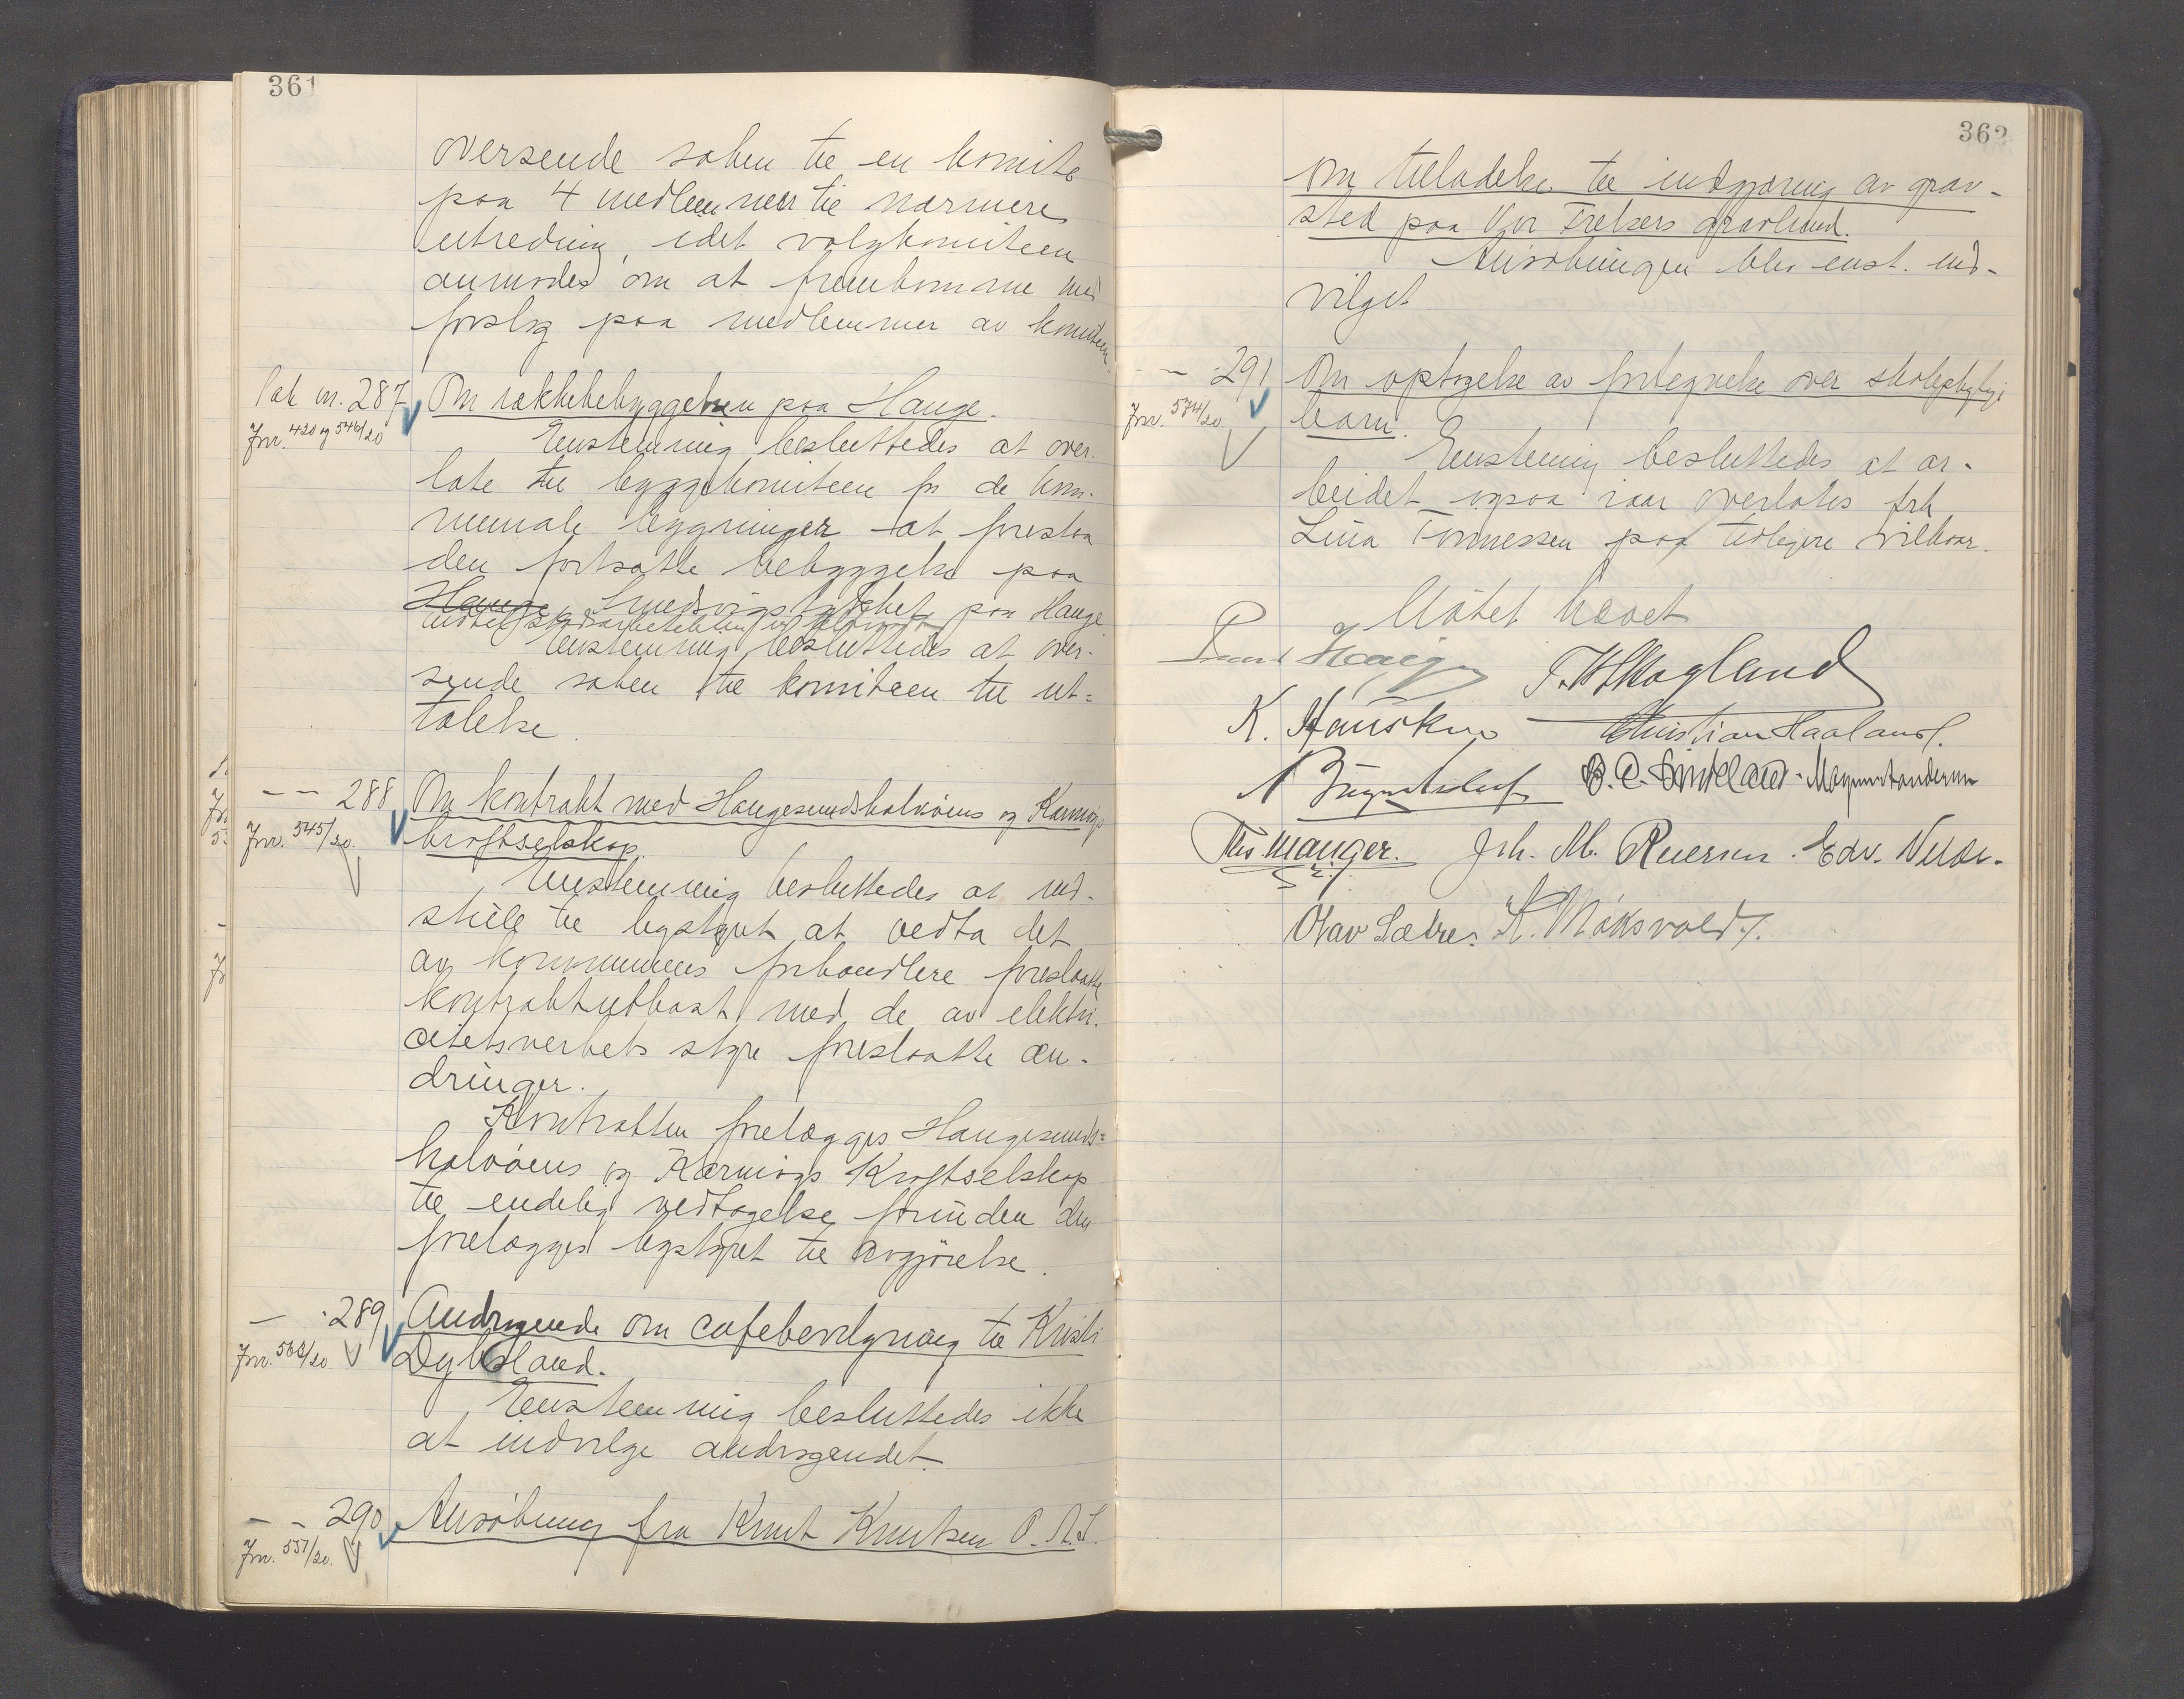 361
oversende saken til en komite
paa 4 medlemmer til nærmere
utredning, idet valgkomiteen
anmodes om at fremkomme med
forslag paa medlemmer av komiteen.
Sak nr. 287 Om rækkebebyggelsen paa Hauge.
Jnr. 420 og 546/20
Enstemmig besluttedes at over-
late til byggekomiteen for de kom-
munale bygninger at forestaa
den fortsatte bebyggelse paa
Hauge Smedsvigstykket paa Hauge
Enstemmig besluttedes at over-
sende saken til komiteen til ut=
talelse.
— — 288 Om kontrakt med Haugesundshalvøens og Karmøys
Jnr. 545/20. kraftselskap.
Enstemmig besluttedes at ind-
stille til bystyret at vedta det
av kommunens forhandlere foreslaatte
kontraktutkast med de av elektri-
citetsverkets styre foreslaatte æn-
dringer.
Kontrakten forelægges Haugesunds=
halvøens og Karmøys Kraftselskap
til endelig vedtagelse forinden den
forelægges bystyret til avgjørelse.
— 289 Andragende om cafebevilgning til Kristi
Jnr. 568/20 Dybsland.
Enstemmig besluttedes ikke
at indvilge andragendet.
— — 290 Ansøkning fra Knut Knutsen O.A.S.
Jnr. 551/20.
362
om tilladelse til indgjæring av grav-
sted paa Vor Frelsers gravlund.
Ansøkningen blev enst. ind-
vilget
— 291 Om optagelse av fortegnelse over skolepligtige
Jnr. 574/20 barn.
Enstemmig besluttedes at ar-
beidet ogsaa iaar overlates frk.
Lina Tønnessen paa tidligere vilkaar.
Møtet hævet
T. H. Skogland
K. Hausken Christian Haaland.
Ths. Manger. Joh. M. Ruersen. Edv.
Olav Sætre. K. Møksvold.